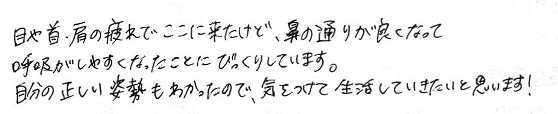 目や首・肩の疲れでここに来たけど、鼻の通りが良くなって
呼吸がしやすくなったことにびっくりしています。
自分の正しい姿勢もわかったので、気をつけて生活していきたいと思います!